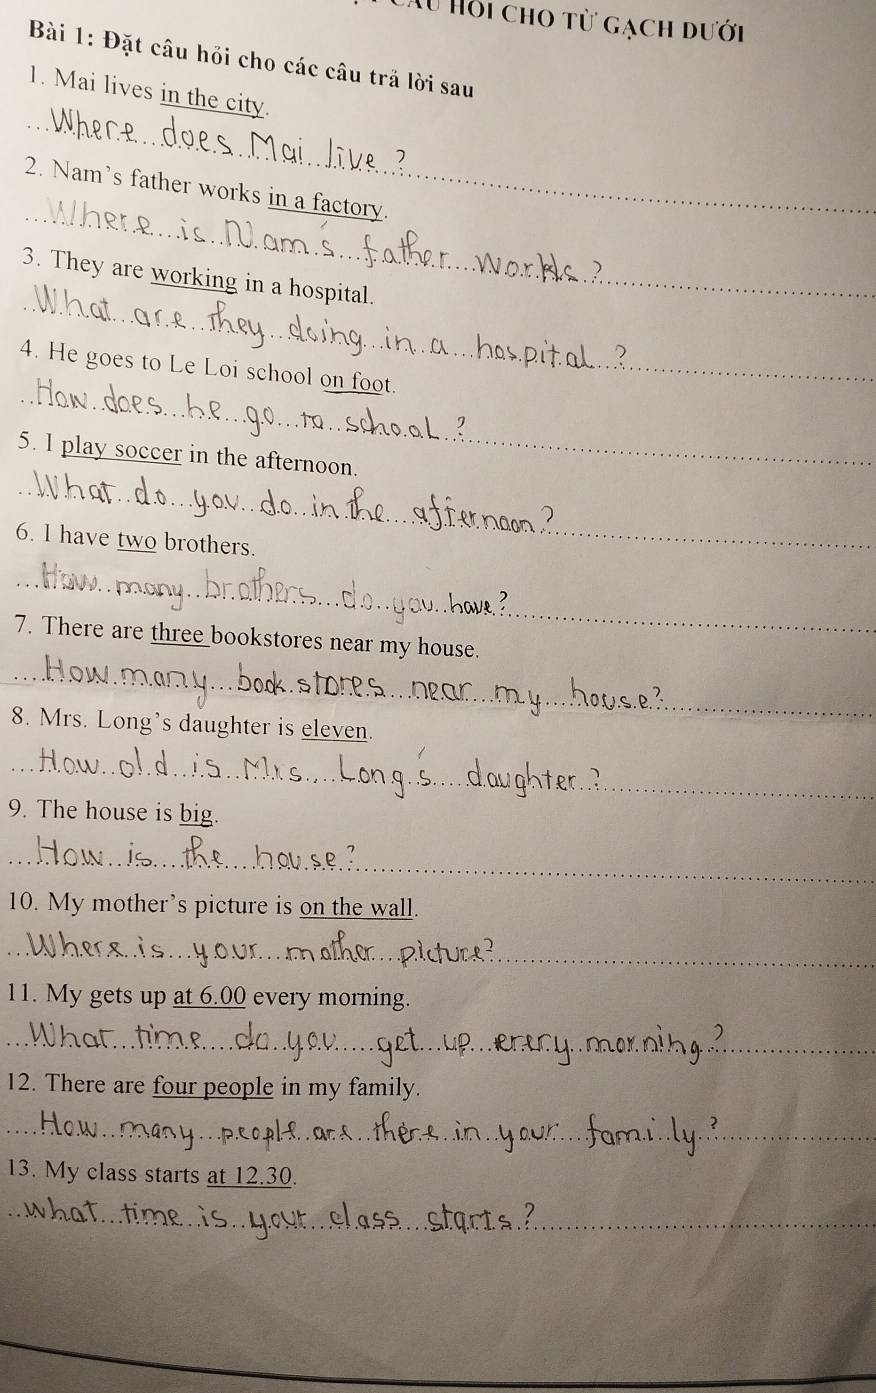 HỎI CHO TỪ GẠCH DƯỚI
Bài 1: Đặt câu hỏi cho các câu trả lời sau
1. Mai lives in the city.
Where does Mai live ?
2. Nam's father works in a factory.
Where is Nam's father works ?
3. They are working in a hospital.
What are they doing in a hospital ?
4. He goes to Le Loi school on foot.
How does he go to school ?
5. I play soccer in the afternoon.
What do you do in the afternoon ?
6. I have two brothers.
How many brothers do you have ?
7. There are three bookstores near my house.
How many book stores near my house ?
8. Mrs. Long's daughter is eleven.
How old is Mrs. Long's daughter ?
9. The house is big.
How is the house ?
10. My mother's picture is on the wall.
Where is your mother picture ?
11. My gets up at 6.00 every morning.
What time do you get up every morning ?
12. There are four people in my family.
How many people are there in your family ?
13. My class starts at 12.30.
What time is your class starts ?